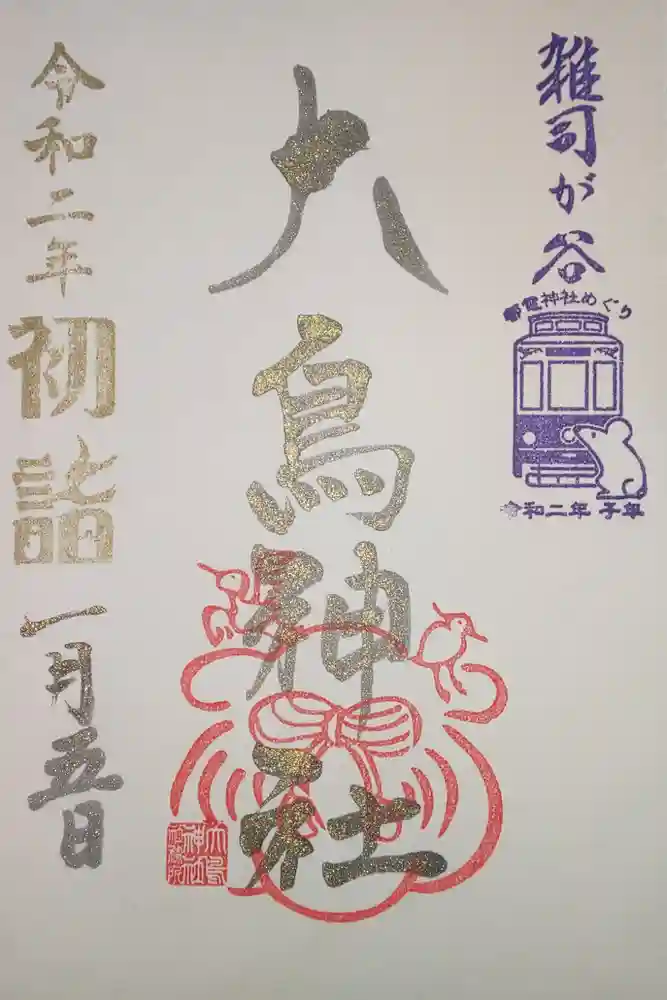 雑司が谷
都電神社めぐり
令和二年 子年
大鳥神社
大鳥
神社
令和二年
初詣
一月五日